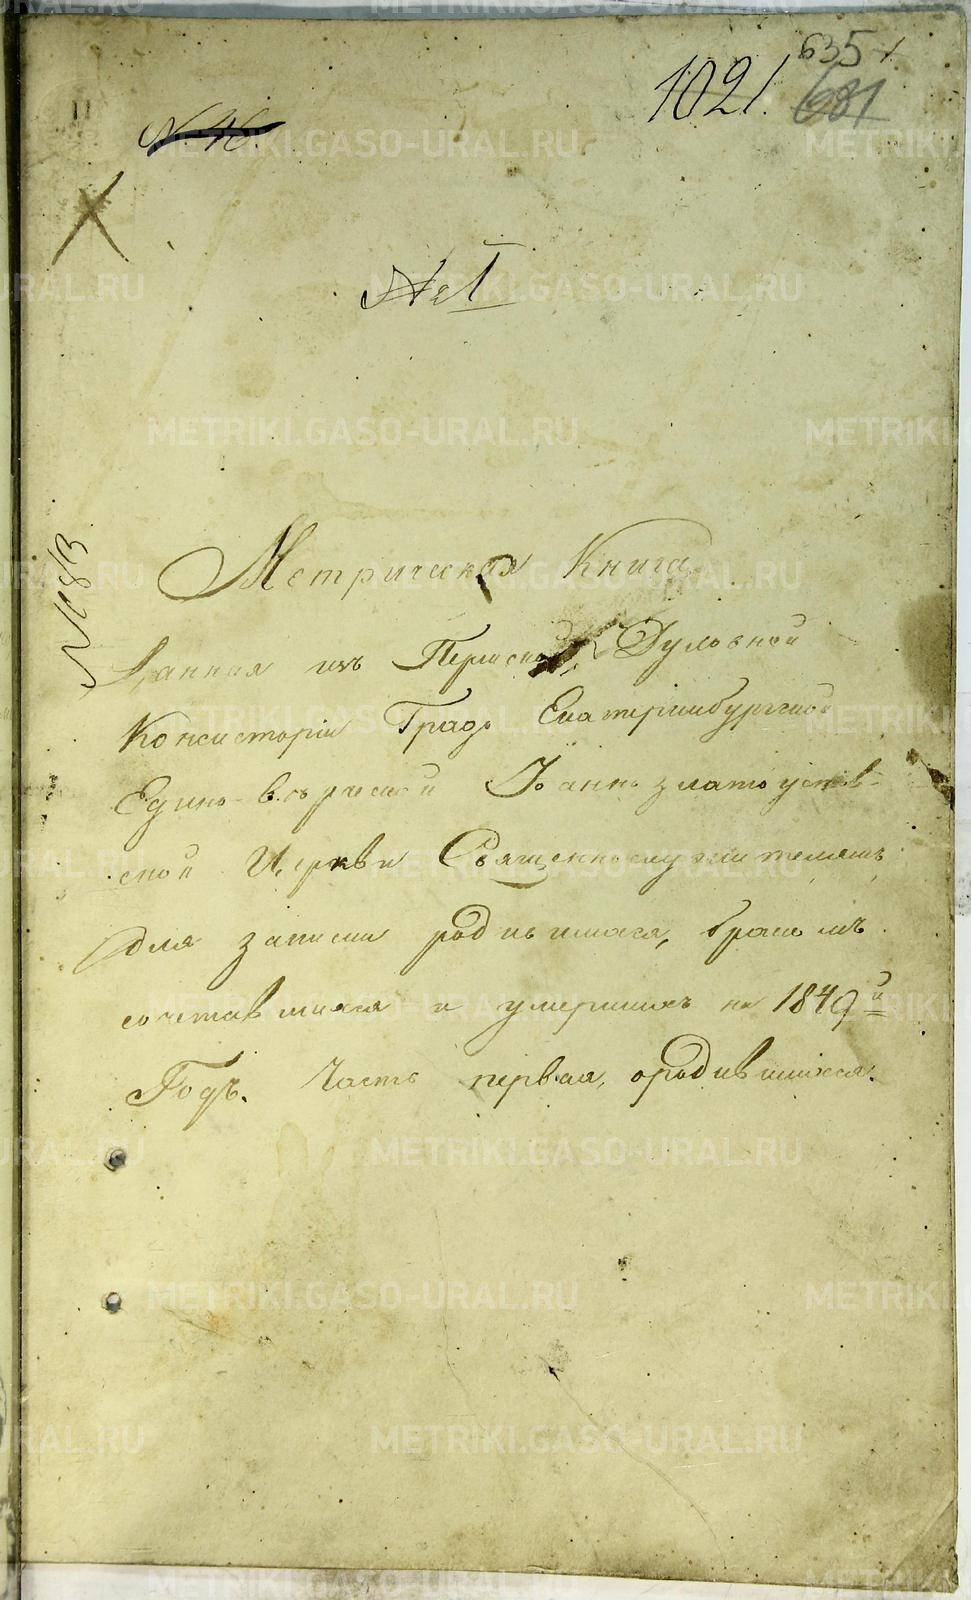 635 1
1021.
681
№ 46
№ 1
№ 83
Метрическая Книга
Данная изъ Пермской Духовной
Консисторіи Градо Екатеринбургской
Едино-верческой Іоанно златоустов-
ской Церкви Священнослужителямъ
для записи родившихся, бракомъ
сочетавшихся и умершихъ на 1849й
Годъ. Часть первая, ородившихся.
METRIKI.GASO-URAL.RU